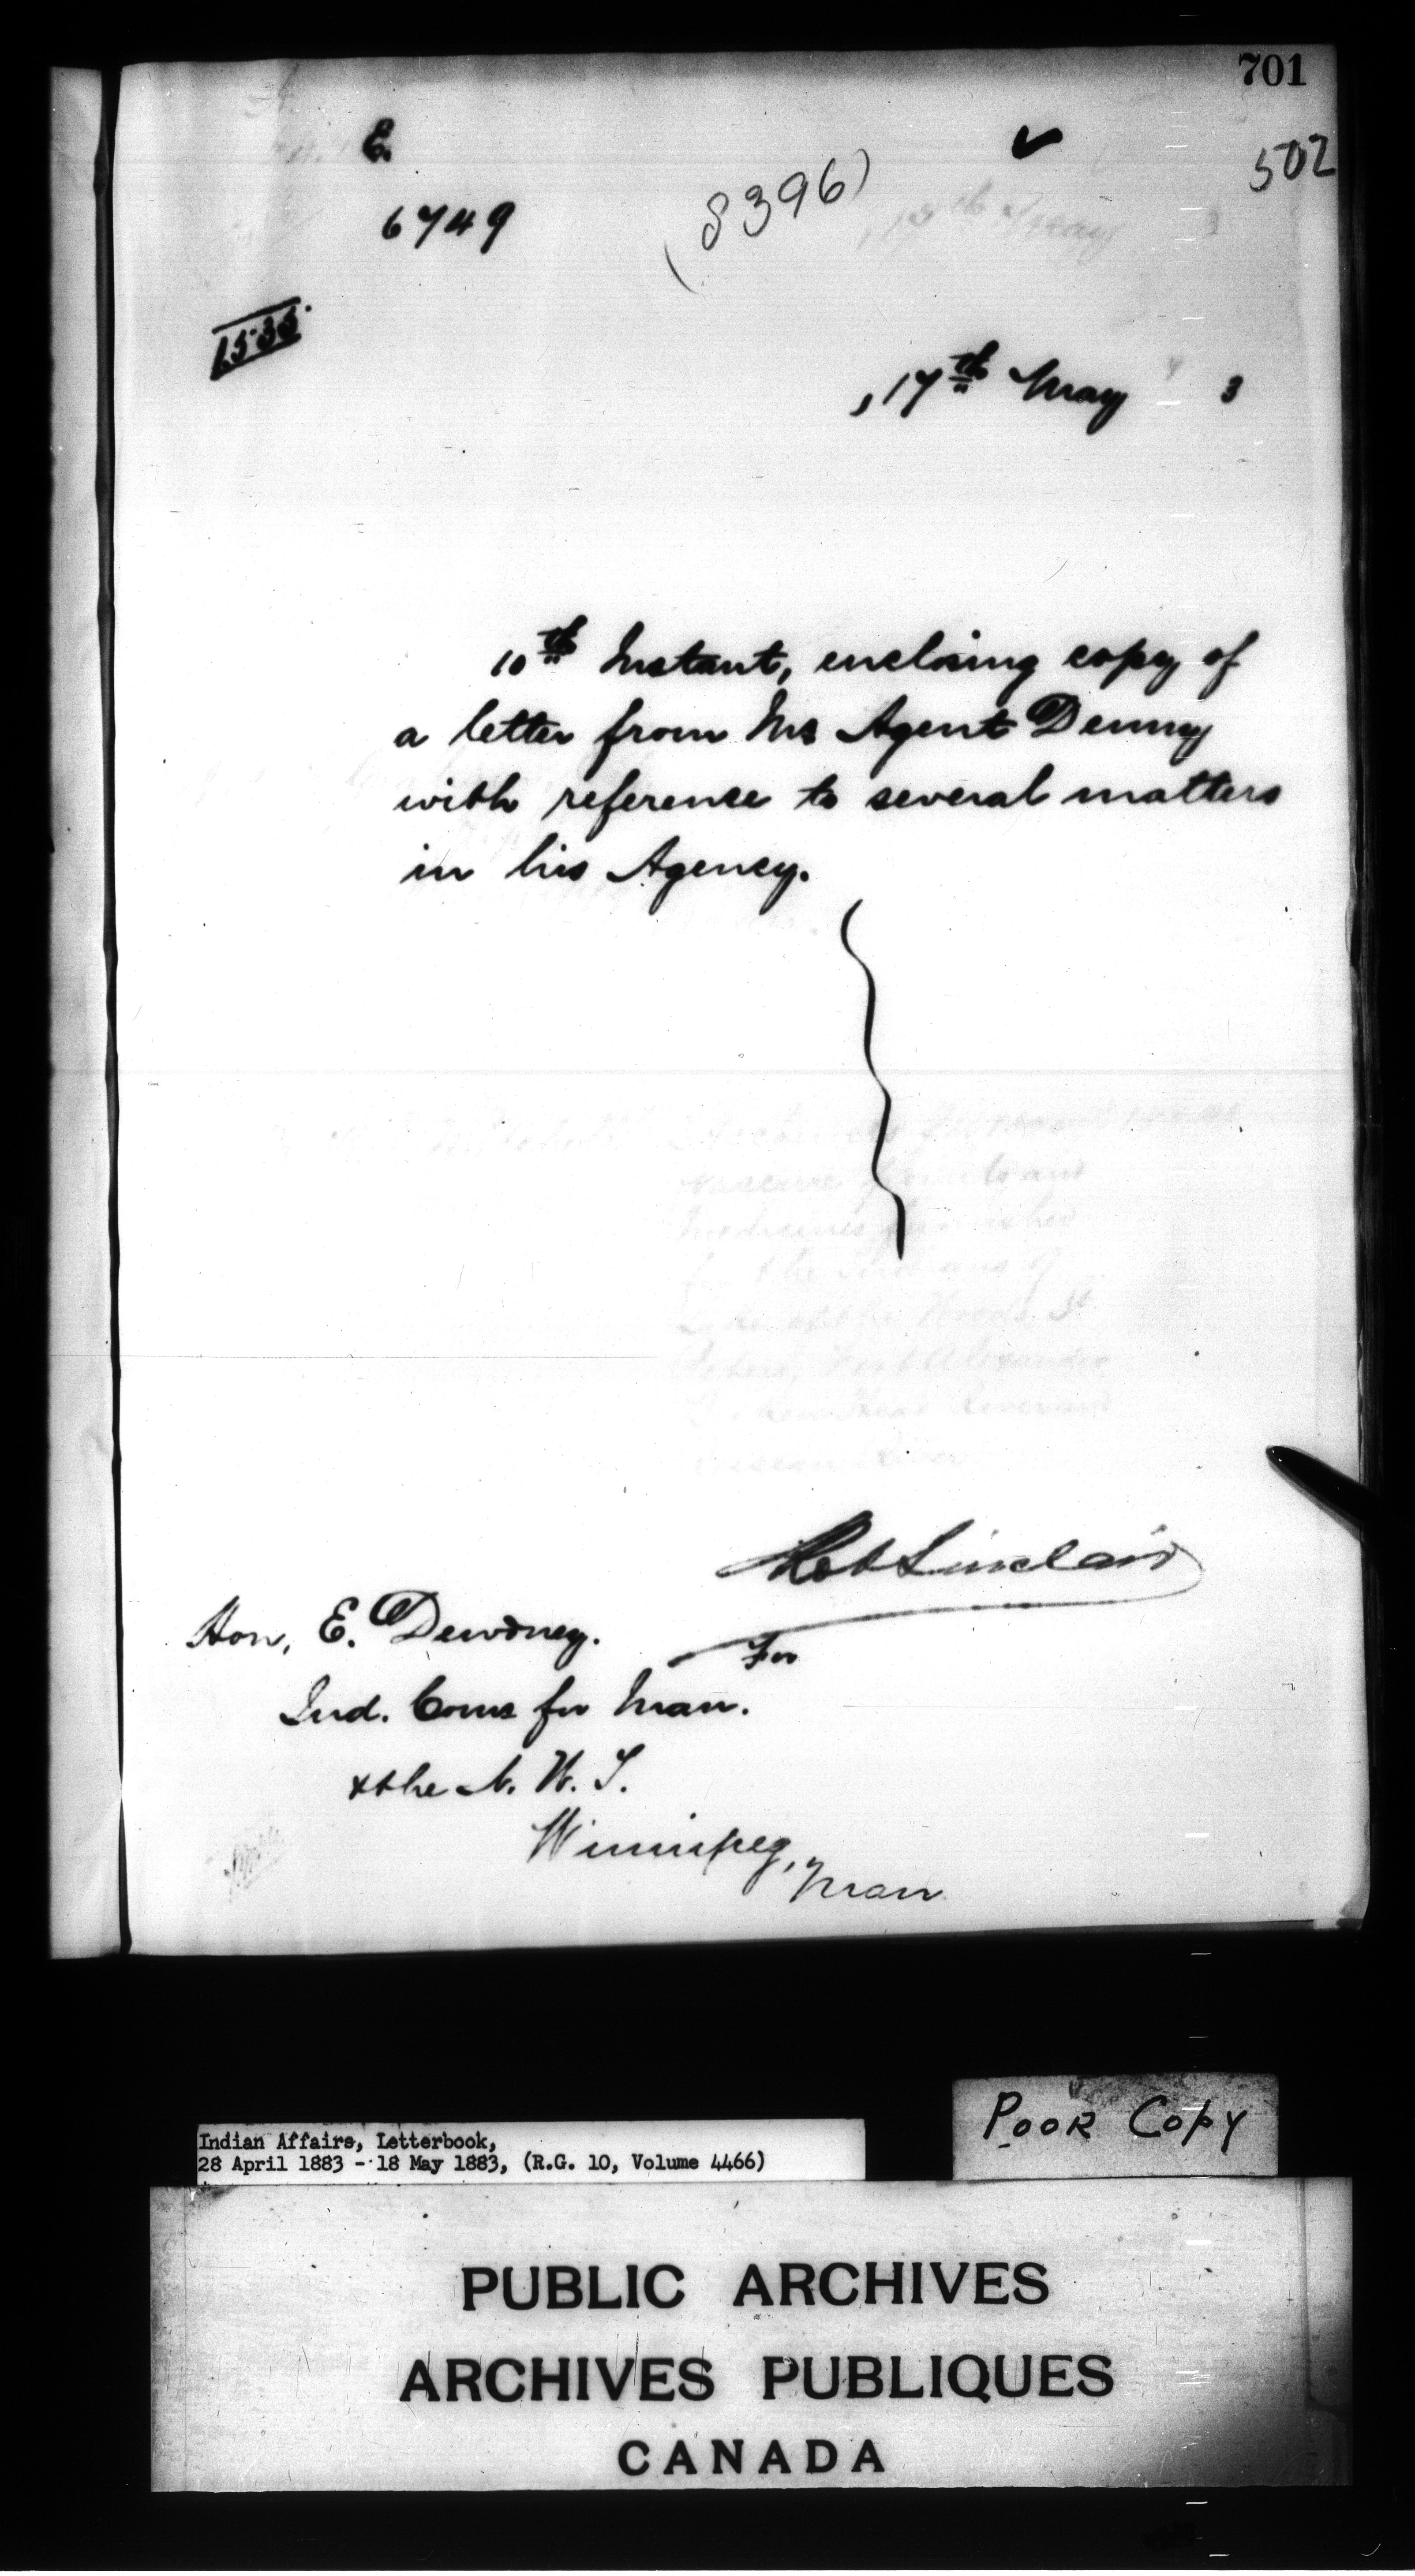 701
E.
6749
(8396)
502
1535
, 17th May 3
10th Instant, enclosing copy of
a letter from Mr Agent Denny
with reference to several matters
in his Agency.
Rob Sinclair
For
Hon, E. Dewdney.
Ind. Coms for Man.
& the N. W. T.
Winnipeg,
Man
Indian Affairs, Letterbook,
28 April 1883 - 18 May 1883, (R.G. 10, Volume 4466)
POOR COPY
PUBLIC ARCHIVES
ARCHIVES PUBLIQUES
CANADA